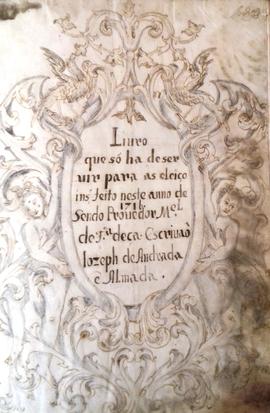 Liuro
que só ha de ser
uir para as eleiço
ins feito neste anno de
171
Sendo Prouedor M.el
de Fr.a deca Escriuaõ
Iozeph de Andrada
e Almada.